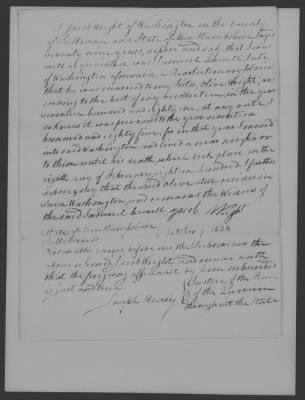 I Jacob Wright of Washington in the County
of Sullivan and State of New Hampshire aged
seventy nine years, depose and say that I was
well acquainted with Samuel Lowell, late
of Washington aforesaid, a Revolutionary Soldier
that he was married to my Sister, Olive Wright, ac-
cording to the best of my recollection, in the year
seventeen hundred and eighty one; at any rate I
do know it was previous to the year seventeen
hundred and eighty five; for in that year I moved
into said Washington and lived a near neighbor
to them until his death, which took place on the
eighth day of February eighteen hundred I further
depose & say that the said Olive still resides in
said Washington, and remains the Widow of
the said Samuel Lowell Jacob Wright
State of New Hampshire
Sullivan ss. October 9 1838
Personally came before me the Subscriber the
above named Jacob Wright and made oath
that the foregoing affidavit by him subscribed
is just and true
Joseph Healy Justice of the Peace
& of the Quorum
throughout the State